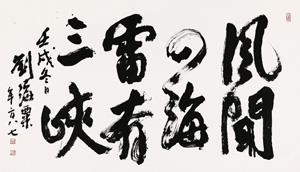 風聞
四海
雷有
三峽
壬戌冬日
劉海粟
年方八七